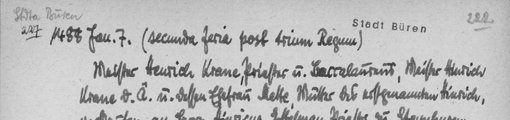 Städt. Büren
227
Stadt Büren
222
1488 Jan. 7. (secunda feria post trium Regum)
Meister Henrich Krane, Priester u. Baccalaureus, Meister Hinrich
Krane d. Ä. u. dessen Ehefrau Mette, Mutter des erstgenannten Hinrich,